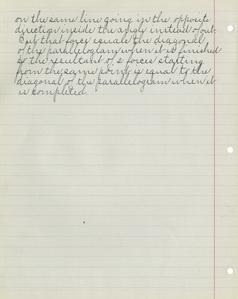 on the same line going in the opposite
direction inside the angle instead of out.
But that force equals the diagonal
of the parallelogram when it is finished
so the resultant of 2 forces starting
from the same point is equal to the
diagonal of the parallelogram when it
is completed.